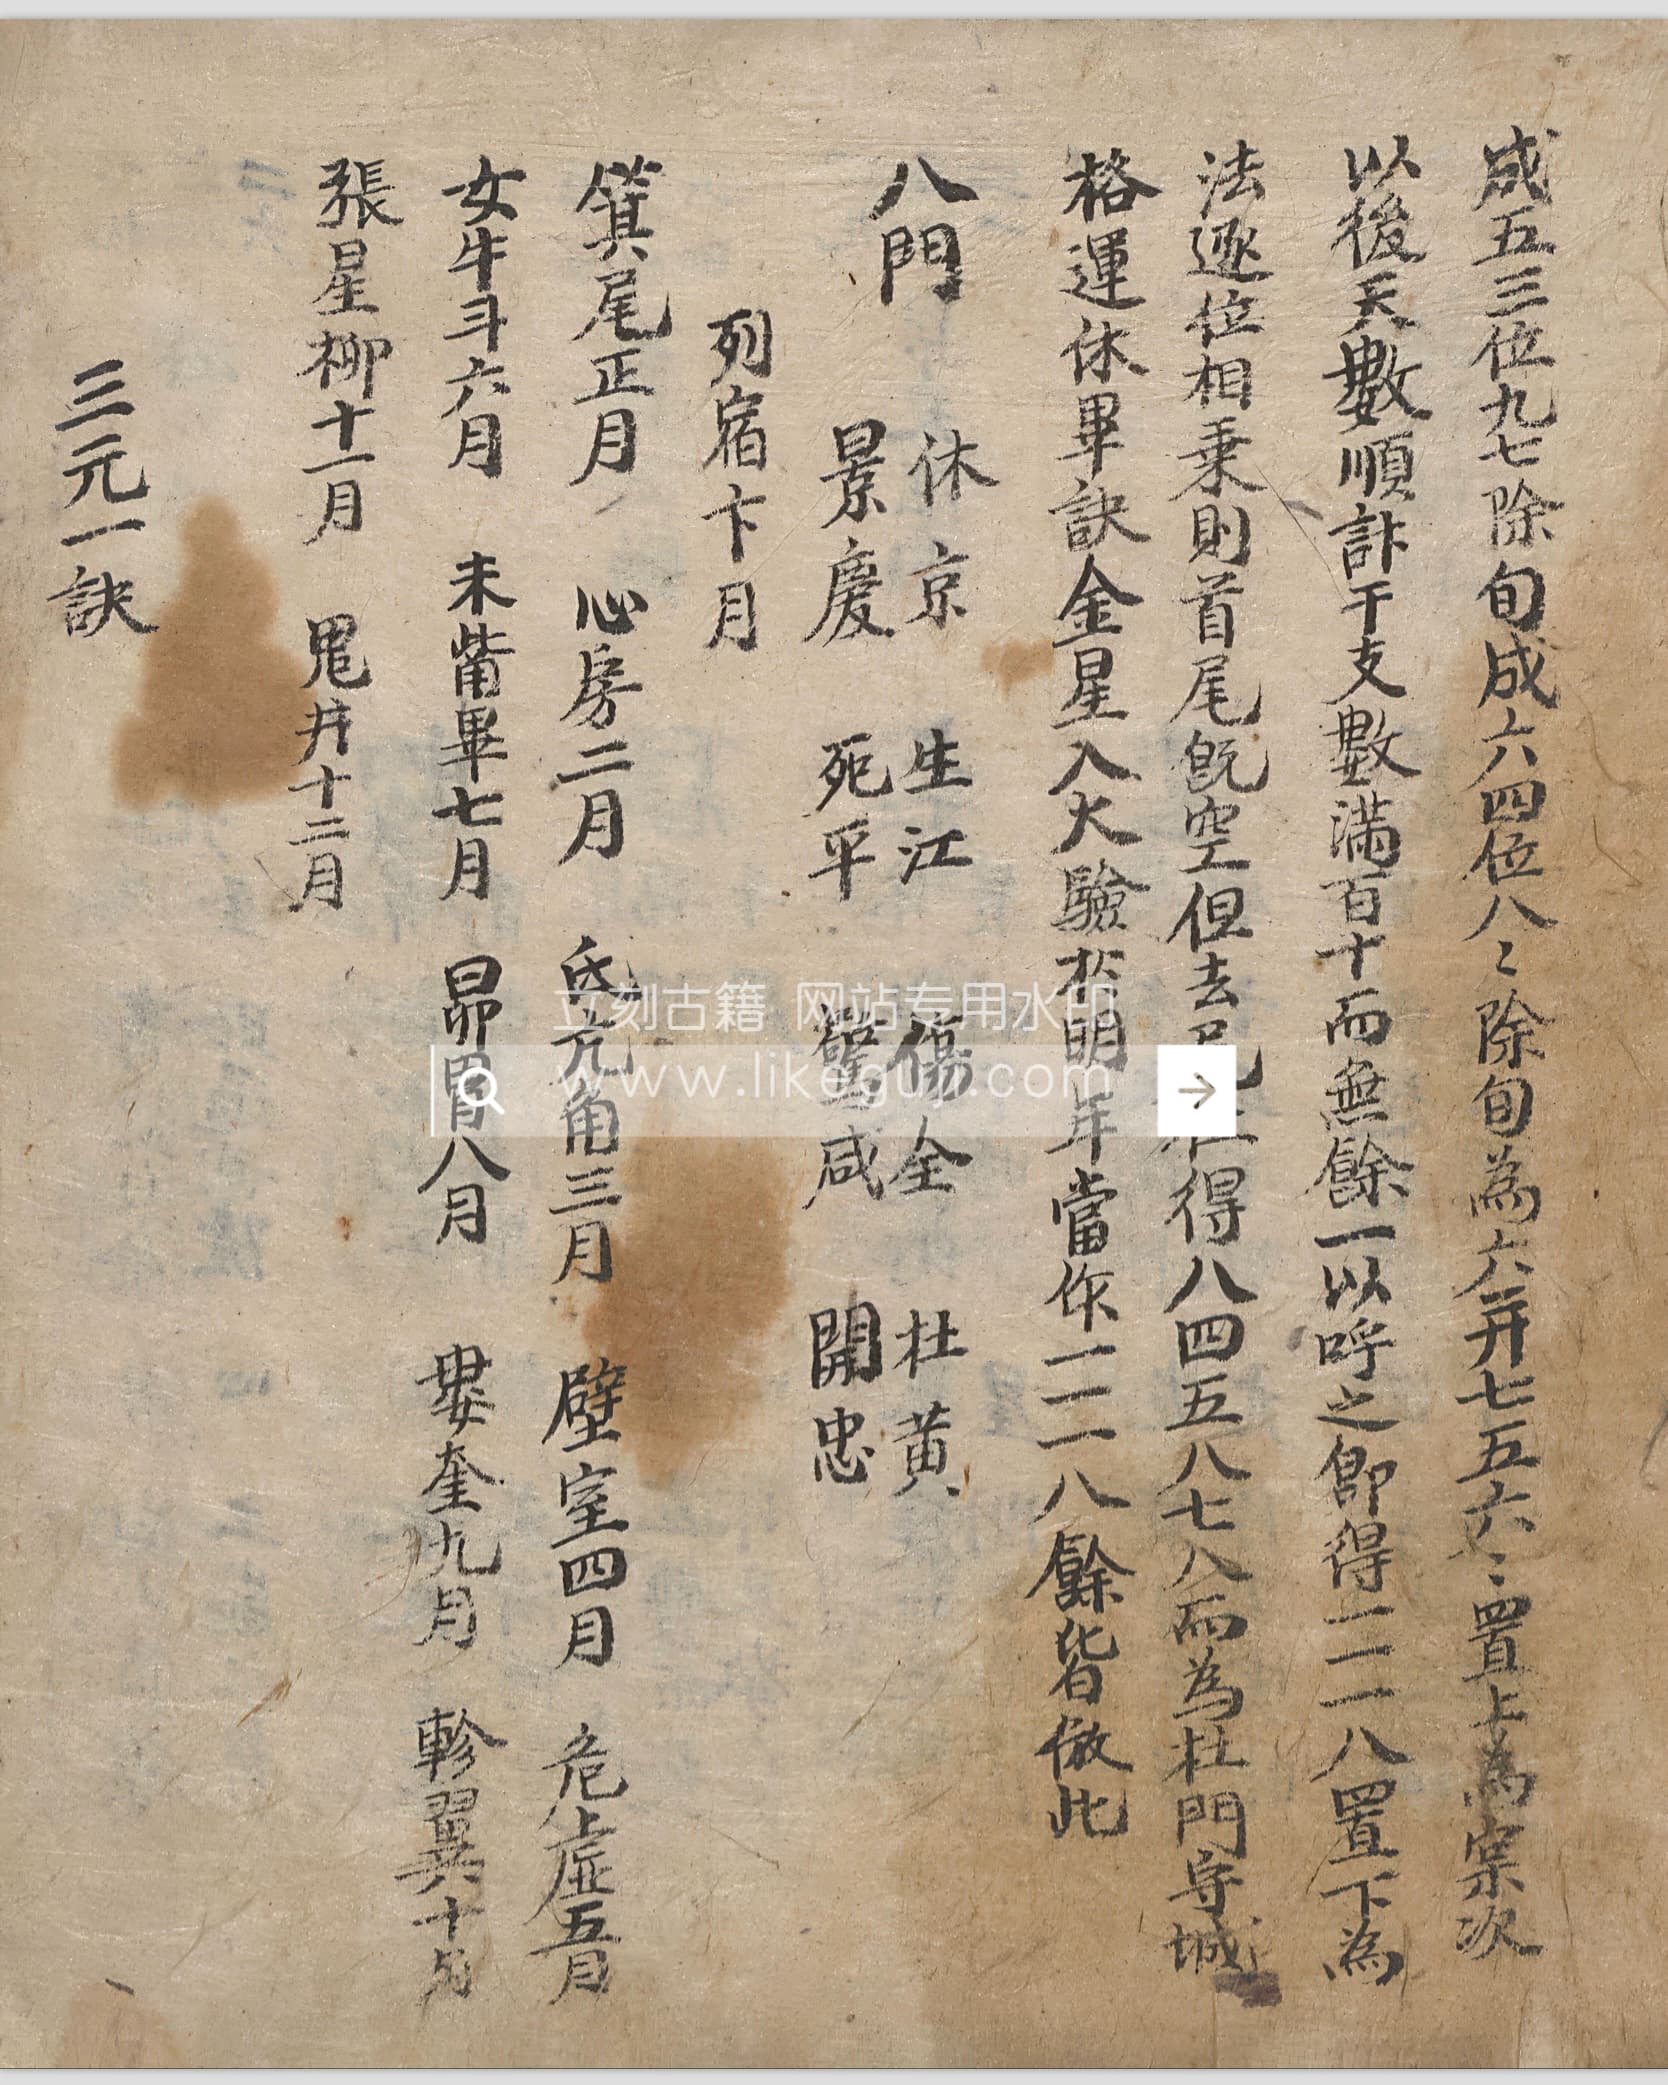 成五三位九七除旬成六四位八〻除旬為六并七五六〻置上為案次
以後天數順計干支數滿百十而無餘一以呼之卽得一二一八置下為
法逐位相乘則首尾旣空但去 得八四五八七八而為杜門守城
格運休畢訣金星入火驗於明年當作一二一八餘皆倣此
八門 休京 生江 傷全 杜黃
景慶 死平 驚咸 開忠
列宿卞月
箕尾正月 心房二月 氐亢角三月 壁室四月 危虛五月
女牛斗六月 未觜畢七月 昴胃八月 婁奎九月 軫翼十月
張星柳十一月 鬼井十二月
三元一訣
立刻古籍 网站专用水印
www.likeguji.com